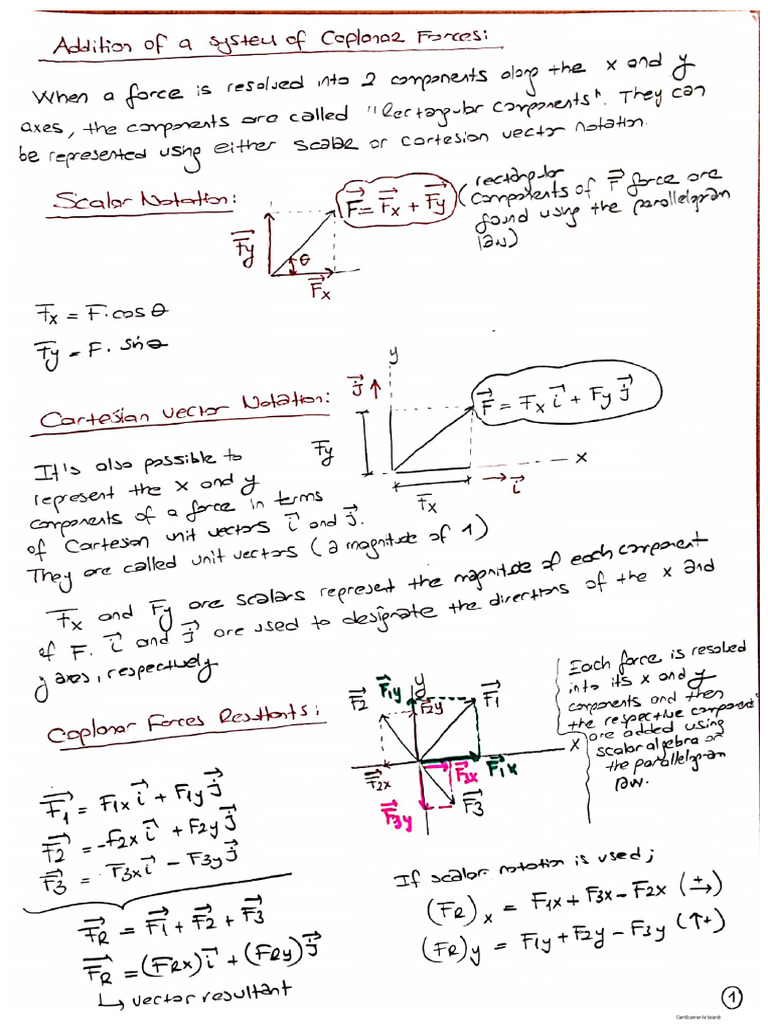 Addition of a system of Coplanar Forces:
When a force is resolved into 2 components along the x and y
axes, the components are called "Rectangular components". They can
be represented using either scalar or cartesian vector notation.
Scalar Notation:
F = Fx + Fy
(rectangular
components of F force are
found using the parallelgram
law)
Fy
θ
Fx
Fx = F.cosθ
Fy = F. sinθ
y
j
Cartesian vector Notation:
F = Fx i + Fy j
Fy
x
i
Fx
It's also possible to
represent the x and y
components of a force in terms
of Cartesan unit vectors i and j.
They are called unit vectors (a magnitude of 1)
Fx and Fy are scalars represent the magnitude of each component
of F. i and j are used to designate the directions of the x and
y axes, respectively
Coplanar Forces Resultants:
y
F2
F1y
F2y
F1
x
F2x
F2x
F1x
F3y
F3
Each force is resolved
into its x and y
components and then
the respective components
are added using
scalar algebra or
the parallelgram
law.
F1 = F1x i + F1y j
F2 = -F2x i + F2y j
F3 = F3x i - F3y j
FR = F1 + F2 + F3
FR = (FRx) i + (FRy) j
↳ vector resultant
If scalar notation is used;
(FR)x = F1x + F3x - F2x (→+)
(FR)y = F1y + F2y - F3y (↑+)
1
CamScanner ile tarandı